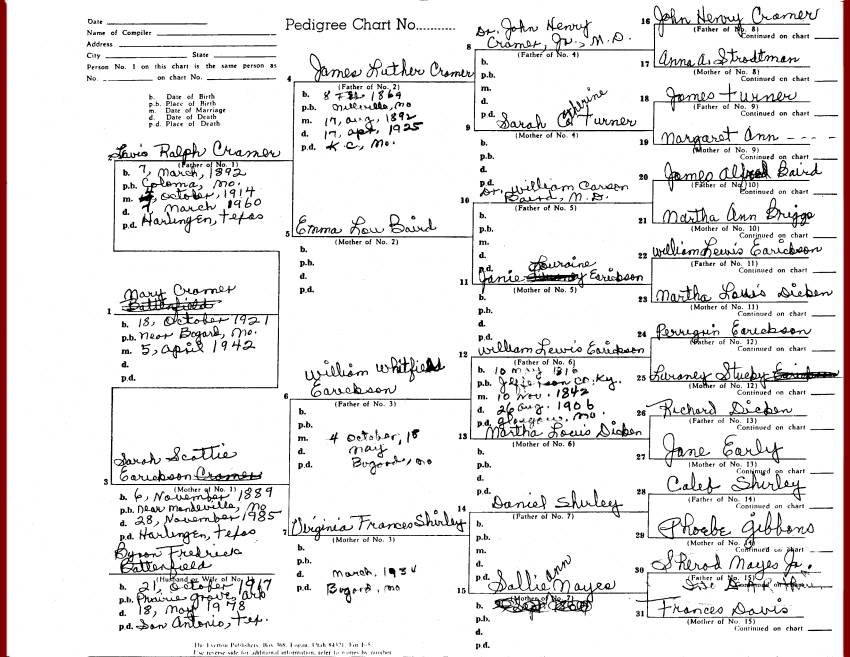 Date
Name of Compiler
Address
City State
Person No. 1 on this chart is the same person as
No. on chart No.
b. Date of Birth
p.b. Place of Birth
m. Date of Marriage
d. Date of Death
p.d. Place of Death
Pedigree Chart No.
2 Lewis Ralph Cramer
(Father of No. 1)
b. 7, March, 1892
p.b. Coloma, Mo.
m. October, 1914
d. 7, March 1960
p.d. Harlingen, Texas
1 Mary Cramer
Battenfield
b. 18, October 1921
p.b. near Bogard, Mo.
m. 5, April 1942
d.
p.d.
3 Sarah Scottie
Earickson Cramer
(Mother of No. 1)
b. 6, November 1889
p.b. near Mandeville, Mo
d. 28, November 1985
p.d. Harlingen, Texas
Byron Fredrick
Battenfield
(Husband or Wife of No. 1)
b. 21, October 1917
p.b. Prairie Grove, Ark
d. 18, May 1978
p.d. San Antonio, Tex.
4 James Luther Cramer
(Father of No. 2)
b. 1869
p.b. Millville, Mo
m. 17, Aug, 1892
d. 17, Apr, 1925
p.d. K.C., Mo.
5 Emma Lou Baird
(Mother of No. 2)
b.
p.b.
d.
p.d.
6 William Whitfield
Earickson
(Father of No. 3)
b.
p.b.
m. 4 October, 18
d. May
p.d. Bogard, Mo
7 Virginia Frances Shirley
(Mother of No. 3)
b.
p.b.
d. March, 1934
p.d. Bogard, Mo
8 Dr. John Henry
Cramer, Jr., M.D.
(Father of No. 4)
b.
p.b.
m.
d.
p.d.
9 Sarah Catherine Turner
(Mother of No. 4)
b.
p.b.
d.
p.d.
10 Dr. William Carson
Baird, M.D.
(Father of No. 5)
b.
p.b.
m.
d.
p.d.
11 Janie Louraine Earickson
(Mother of No. 5)
b.
p.b.
d.
p.d.
12 William Lewis Earickson
(Father of No. 6)
b. 10 May 1816
p.b. Jefferson Co. Ky.
m. 10 Nov. 1842
d. 26 Aug. 1906
p.d. Glasgow, Mo.
13 Martha Louis Dicken
(Mother of No. 6)
b.
p.b.
d.
p.d.
14 Daniel Shirley
(Father of No. 7)
b.
p.b.
m.
d.
p.d.
15 Sallie Ann Mayes
(Mother of No. 7)
b.
p.b.
d.
p.d.
16 John Henry Cramer
(Father of No. 8)
Continued on chart
17 Anna A. Strodtman
(Mother of No. 8)
Continued on chart
18 James Turner
(Father of No. 9)
Continued on chart
19 Margaret Ann - - -
(Mother of No. 9)
Continued on chart
20 James Alfred Baird
(Father of No. 10)
Continued on chart
21 Martha Ann Briggs
(Mother of No. 10)
Continued on chart
22 William Lewis Earickson
(Father of No. 11)
Continued on chart
23 Martha Louis Dicken
(Mother of No. 11)
Continued on chart
24 Perregrin Earickson
(Father of No. 12)
Continued on chart
25 Luraney Stucky Earickson
(Mother of No. 12)
Continued on chart
26 Richard Dicken
(Father of No. 13)
Continued on chart
27 Jane Early
(Mother of No. 13)
Continued on chart
28 Caleb Shirley
(Father of No. 14)
Continued on chart
29 Phoebe Gibbons
(Mother of No. 14)
Continued on chart
30 Sherod Mayes Jr.
(Father of No. 15)
Continued on chart
31 Frances Davis
(Mother of No. 15)
Continued on chart
The Everton Publishers, Box 368, Logan, Utah 84321, Fm
Use reverse side for additional information, refer to names by number